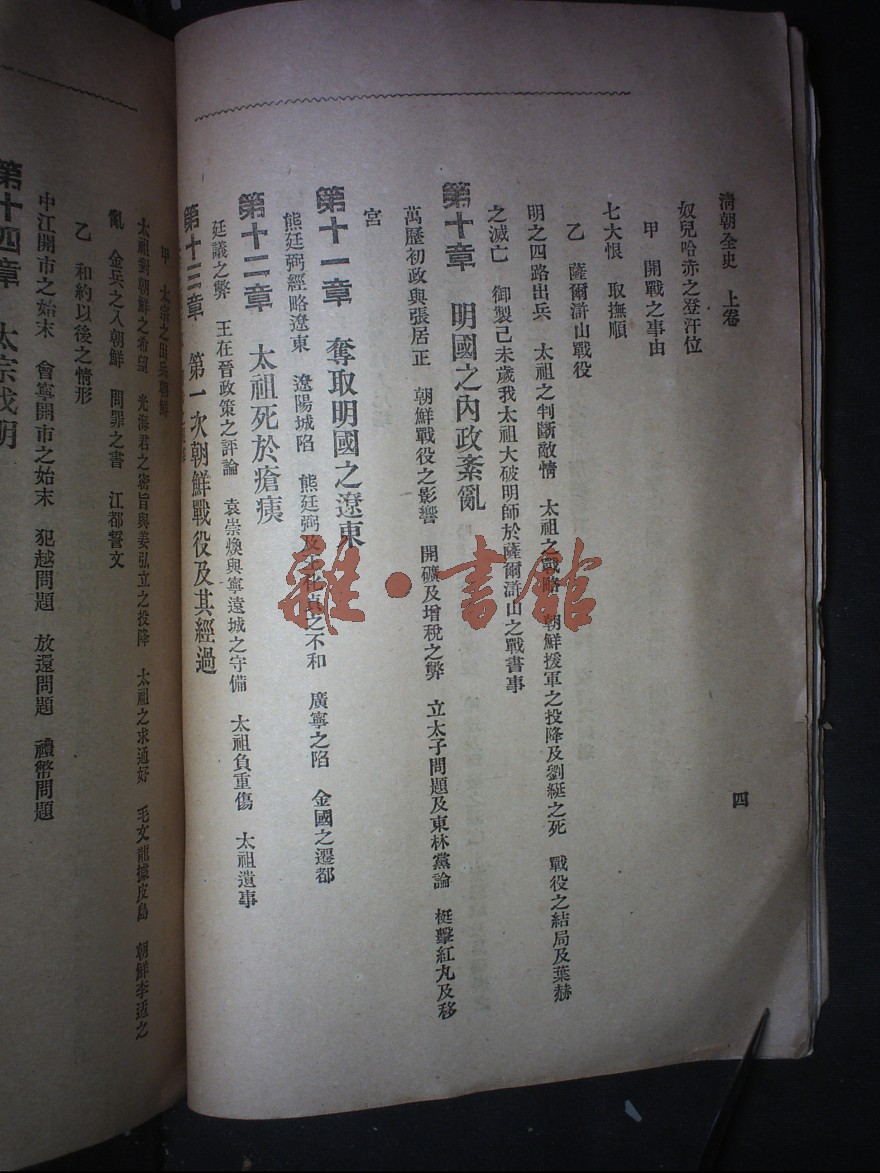 清朝全史　上卷
四
奴兒哈赤之登汗位
甲　開戰之事由
七大恨　取撫順
乙　薩爾滸山戰役
明之四路出兵　太祖之判斷敵情　太祖之戰略　朝鮮援軍之投降及劉綎之死　戰役之結局及葉赫
之滅亡　御製己未歲我太祖大破明師於薩爾滸山之戰書事
第十章　明國之內政紊亂
萬歷初政與張居正　朝鮮戰役之影響　開礦及增稅之弊　立太子問題及東林黨論　梃擊紅丸及移
宮
第十一章　奪取明國之遼東
熊廷弼經略遼東　遼陽城陷　熊廷弼及王化貞之不和　廣寧之陷　金國之遷都
第十二章　太祖死於瘡痍
廷議之弊　王在晉政策之評論　袁崇煥與寧遠城之守備　太祖負重傷　太祖遺事
第十三章　第一次朝鮮戰役及其經過
甲　太宗之出兵朝鮮
太祖對朝鮮之希望　光海君之密旨與姜弘立之投降　太祖之求通好　毛文龍據皮島　朝鮮李适之
亂　金兵之入朝鮮　問罪之書　江都誓文
乙　和約以後之情形
中江開市之始末　會寧開市之始末　犯越問題　放還問題　禮幣問題
第十四章　太宗伐明
雜·書館